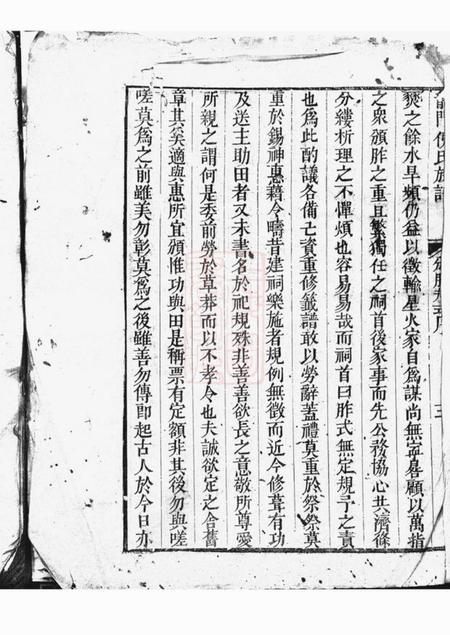 燹之餘水旱頻仍益以徵輸星火家自為謀尚無寧晷顧以萬指
之眾頒胙之重且繁獨任之祠首後家事而先公務協心共濟條
分縷析理之不憚煩也容易易哉而祠首曰胙式無定規予之責
也為此酌議各備己資重修籤譜敢以勞辭蓋禮莫重於祭祭莫
重於錫神惠藉令疇昔建祠樂施者規例無徵而近今修葺有功
及送主助田者又未書名於祀規殊非善善欲長之意敬所尊愛
所親之謂何是委前勞於草莽而以不孝令也夫誠欲定之合舊
章其奚適與惠所宜頒惟功與田是稱票有定額非其後勿與嗟
嗟莫為之前雖美勿彰莫為之後雖善勿傳即起古人於今日亦